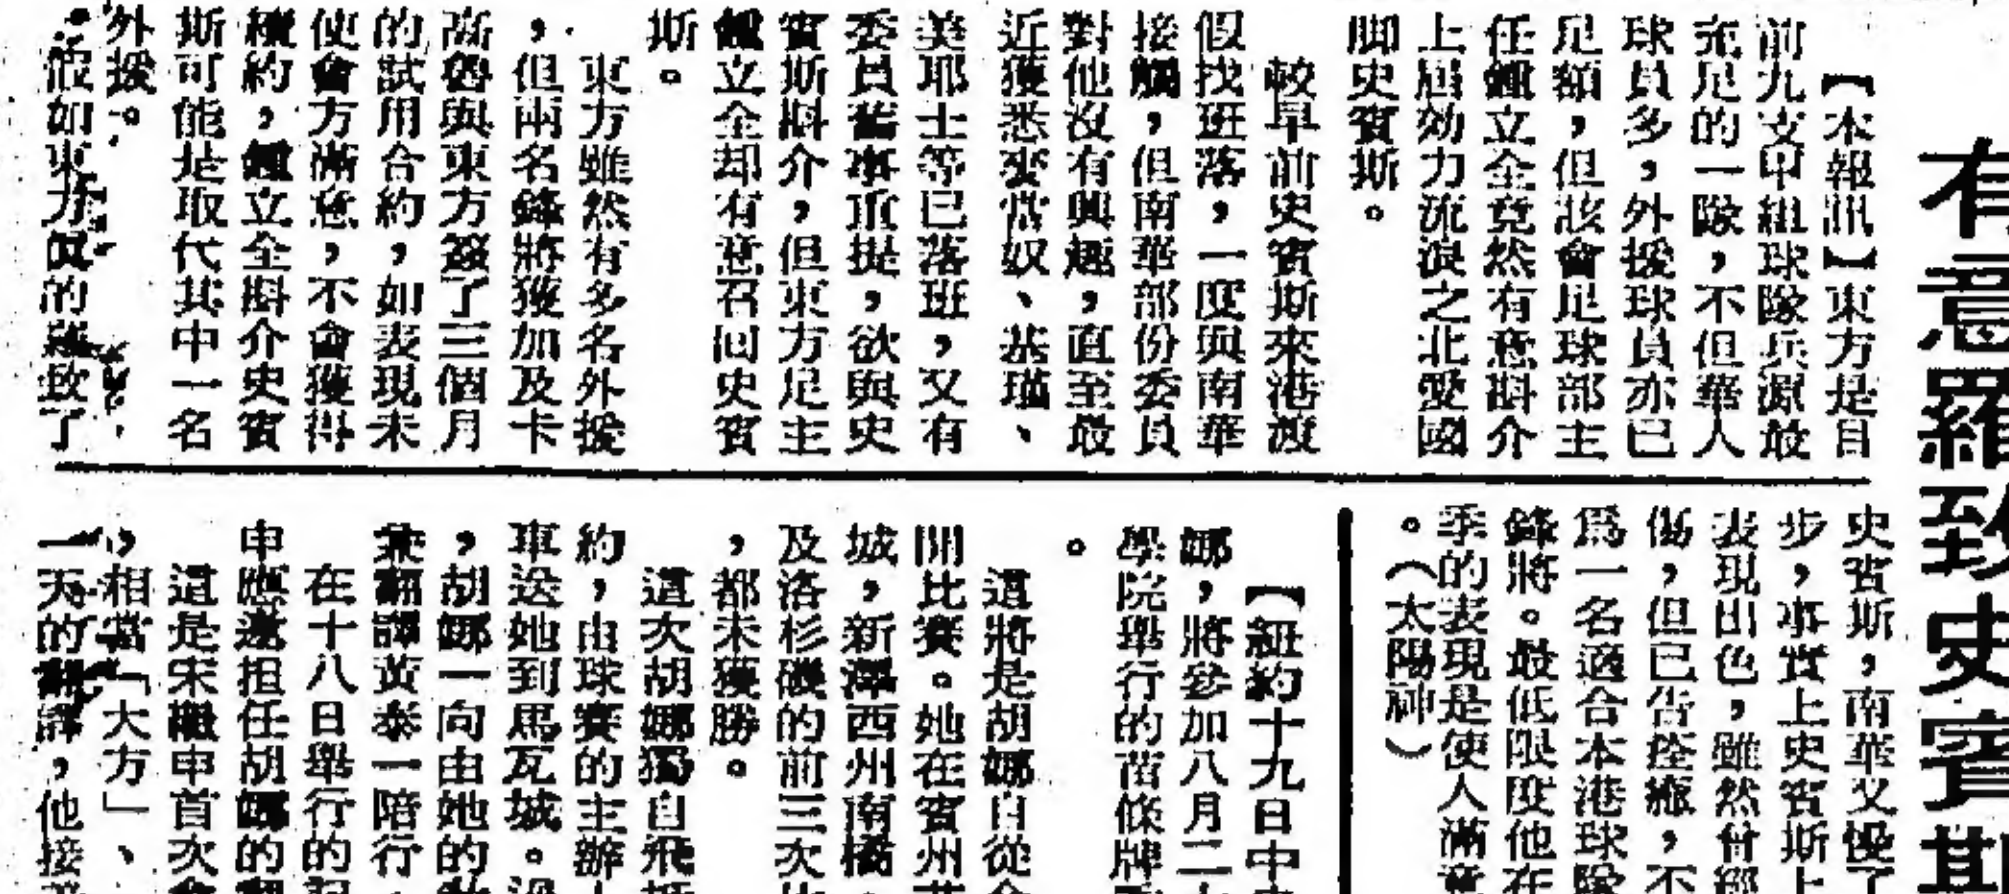 有意羅致史賓斯
【本報訊】東方是目
前九支甲組球隊兵源最
充足的一隊，不但華人
球員多，外援球員亦已
足額，但該會足球部主
任鍾立全竟然有意斟介
上屆効力流浪之北愛國
脚史賓斯。
較早前史賓斯來港渡
假找班落，一度與南華
接觸，但南華部份委員
對他沒有興趣，直至最
近獲悉麥當奴、基瑾、
美耶士等已落班，又有
委員舊事重提，欲與史
賓斯斟介，但東方足主
鍾立全却有意召回史賓
斯。
東方雖然有多名外援
，但兩名鋒將獲加及卡
高魯與東方簽了三個月
的試用合約，如表現未
使會方滿意，不會獲得
續約，鍾立全斟介史賓
斯可能是取代其中一名
外援。
假如東方真的羅致了
史賓斯，南華又慢了
步，事實上史賓斯上
表現出色，雖然曾
傷，但已告痊癒，不
為一名適合本港球隊
鋒將。最低限度他在
季的表現是使人滿意
。（太陽神）
【紐約十九日中
娜，將參加八月二
學院舉行的苗條牌
。
這將是胡娜自從
開比賽。她在賓州
城，新澤西州南橘
及洛杉磯的前三次比
，都未獲勝。
這次胡娜獨自飛
約，由球賽的主辦
車送她到馬瓦城。
，胡娜一向由她的
兼翻譯黃泰一陪行
在十八日舉行的
申應邀担任胡娜的
這是宋繼申首次
，相當「大方」、
一天的翻譯，他接